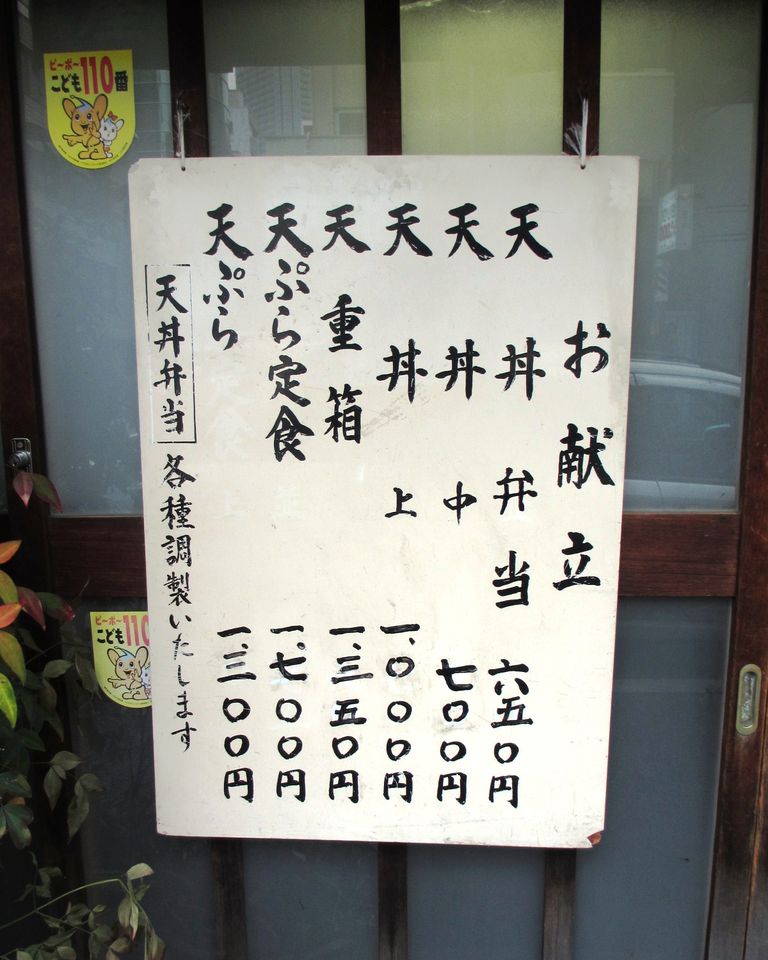 お献立
天丼弁当 六五〇円
天丼 中 七〇〇円
天丼 上 一、〇〇〇円
天重箱 一、三五〇円
天ぷら定食 一、七〇〇円
天ぷら 一、三〇〇円
天丼弁当 各種調製いたします
ピーポーくん
こども110番
ピーポーくん
こども110